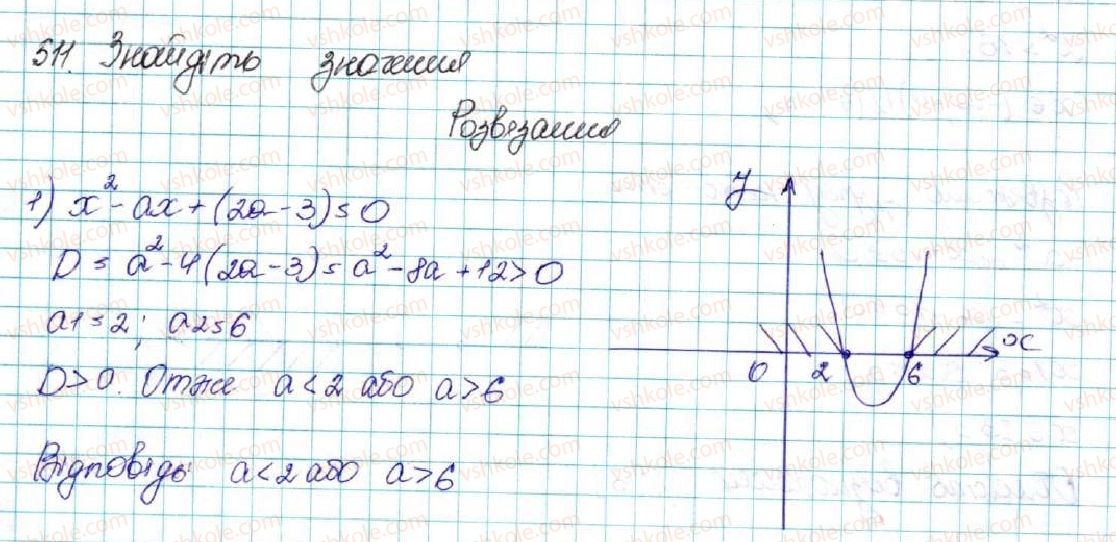 511. Знайдіть значення
Розв'язання
1) x² - ax + (2a - 3) = 0
D = a² - 4(2a - 3) = a² - 8a + 12 > 0
a1 = 2; a2 = 6
D > 0. Отже a < 2 або a > 6
Відповідь a < 2 або a > 6
y
x
0 2 6
vshkole.com